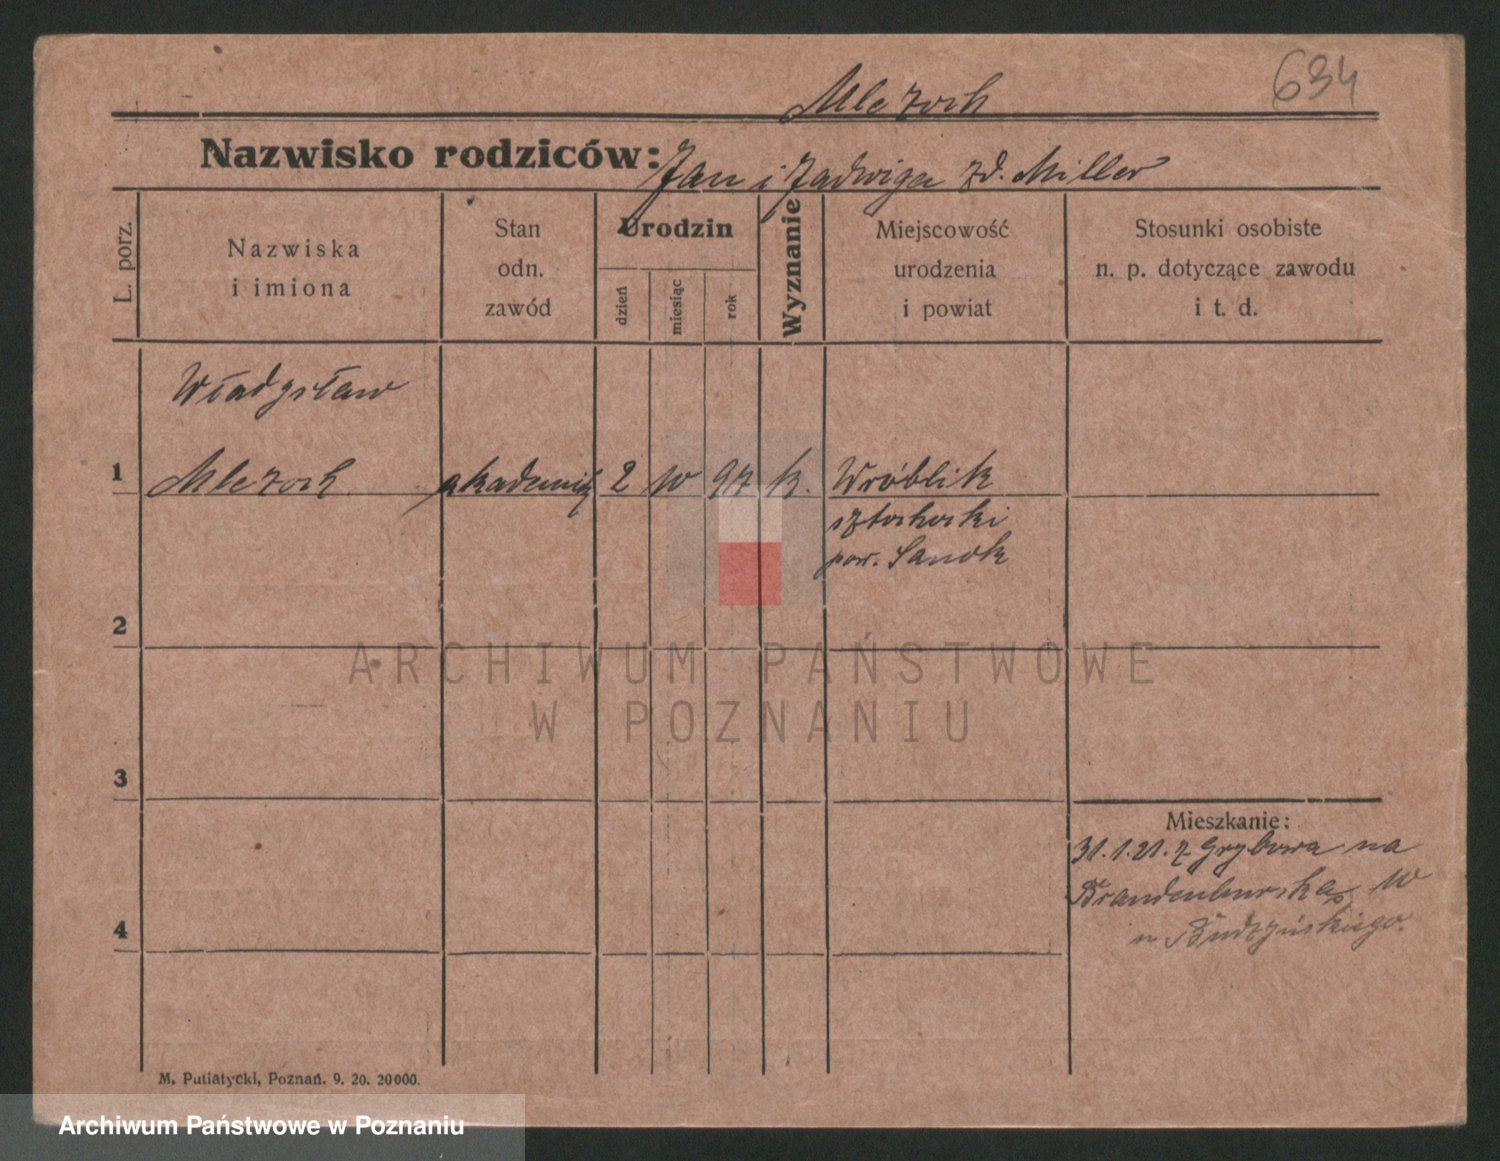 634
Mleczoch
Nazwisko rodziców: Jan i Jadwiga zd. Miller
L. porz.
Nazwiska
i imiona
Stan
odn.
zawód
Urodzin
dzień
miesiąc
rok
Wyznanie
Miejscowość
urodzenia
i powiat
Stosunki osobiste
n. p. dotyczące zawodu
i t. d.
Władysław
1 Mleczoch akademik 2 10 97 k. Wróblik
szlachecki
pow. Sanok
2
3
4
Mieszkanie:
31.1.21. z Grybowa na
Brandenburska 10
u Budzyńskiego.
M. Putiatycki, Poznań. 9. 20. 20000.
ARCHIWUM PAŃSTWOWE
W POZNANIU
Archiwum Państwowe w Poznaniu